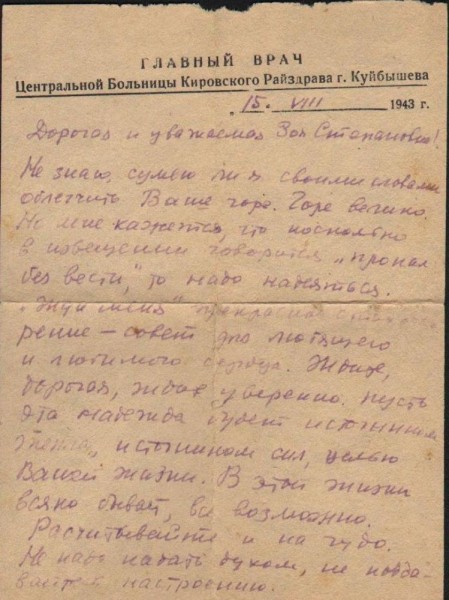 ГЛАВНЫЙ ВРАЧ
Центральной Больницы Кировского Райздрава г. Куйбышева
15. VIII 1943 г.
Дорогая и уважаемая Зоя Степановна!
Не знаю, сумею ли я своими словами
облегчить Ваше горе. Горе велико.
Но мне кажется, что поскольку
в извещении говорится „пропал
без вести“, то надо надеяться.
„Жди меня“ прекрасное стихотво
рение — совет это любящего
и любимого сердца. Ждите,
дорогая, ждите уверенно. Пусть
эта надежда будет источником
тепла, источником сил, целью
Вашей жизни. В этой жизни
всяко бывает, все возможно.
Расчитывайте и на чудо.
Не надо падать духом, не подда-
вайтесь настроению.